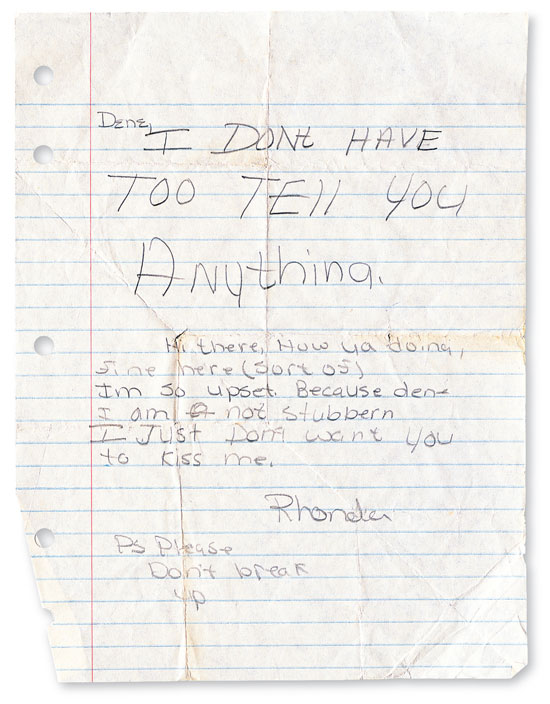 Dene, I DONt HAVE
TOO TEll YOU
Anything.
Hi there, How ya doing,
fine here (sort of)
Im so upset. Because dene
I am not stubbern
I Just Dont want you
to kiss me.
Rhonda
Ps Please
Don't break
up